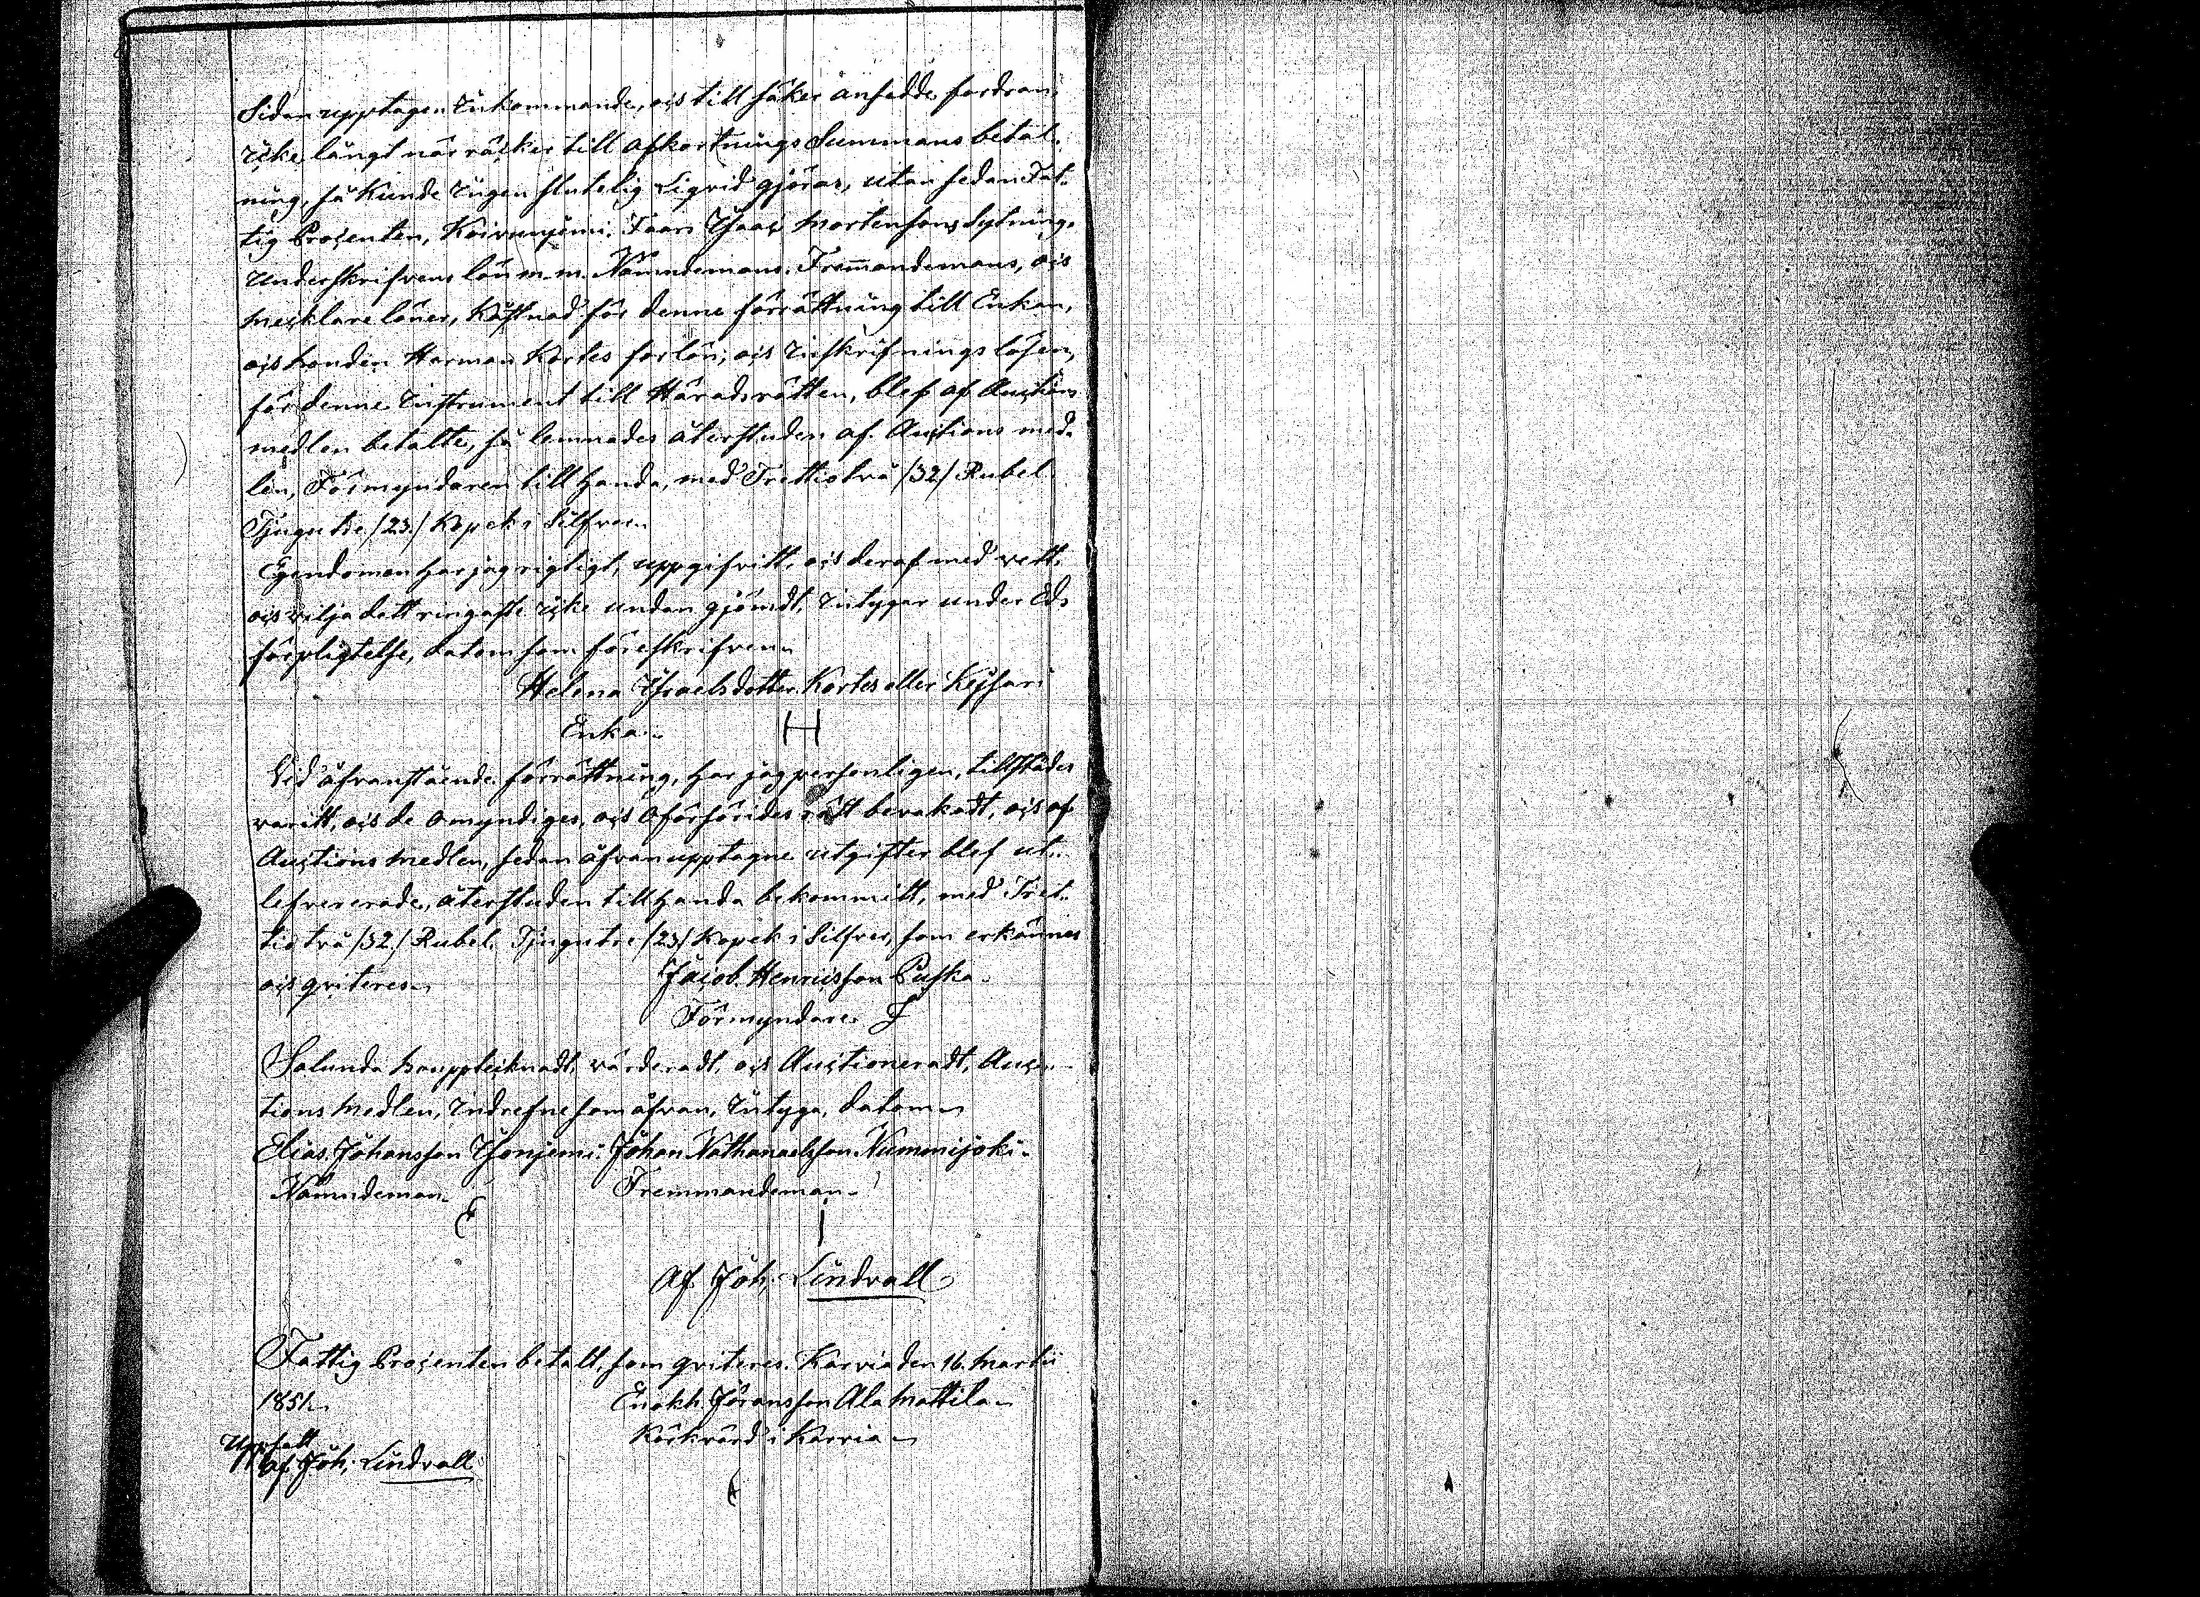 Sidan upptagen Inkommande, och till säker ansedde fordran,
icke långt när räcker till afkortnings Summans betal-
ning, så kunde ingen slutelig Liqvid gjöras, utan sedan Fat-
tig Procenten, Koivunjemi, Faars Isaac Mortensons Sytning,
Underskrifvens lön m.m. Nämndemans, Fremmandemans, och
mecklare löner, Kåstnad för denne förrättning till Enkan,
och honden Herman Kortes forlön, och Inskrifnings lösen,
för denne Instrument till Häradsrätten, blef af Auctions
medlen betalte, så lemnades återstuden af Auctions med-
len, Förmyndaren till handa, med Trettiotvå /32/ Rubel
Tjugutre /23/ Kopek i Silfver.
Egendomen har jag rigtigt, uppgifvitt, och deraf med vett,
och vilja dett ringaste icke undan gjömdt, intygar under Eds
förpligtelse, datom som föreskrifven.
Helena Israelsdotter Kortes eller Kejsari
Enka. H
Vid åfvanstående förrättning, har jag personligen, tillstädes
varitt, och de Omyndiges, och Oförsörides rätt bevakadt, och af
Auctions Medlen, sedan åfvan upptagne utgifter blef ut-
lefvererade, återstuden till handa bekommitt, med Tret-
tiotvå /32/ Rubel Tjugutre /23/ Kopek i Silfver, som erkännes
och qviteres.
Jacob Henricsson Puska
Förmyndare
Salunda hauppteiknadt, värderadt, och Auctioneradt, Auc-
tions Medlen, Indrefne som åfvan, Intyga, datom
Elias Johansson Isonjemi. Johan Nathanaelsson Nummijoki.
Nämndeman. Fremmandeman.
Af Joh: Lindvall
Fattig Procenten betalt, som qviteres. Karvia den 16. Martii
1851.
Enokh Jöransson Ala Mattila
Körkvärd i Karvia
Uppsatt
af Joh: Lindvall